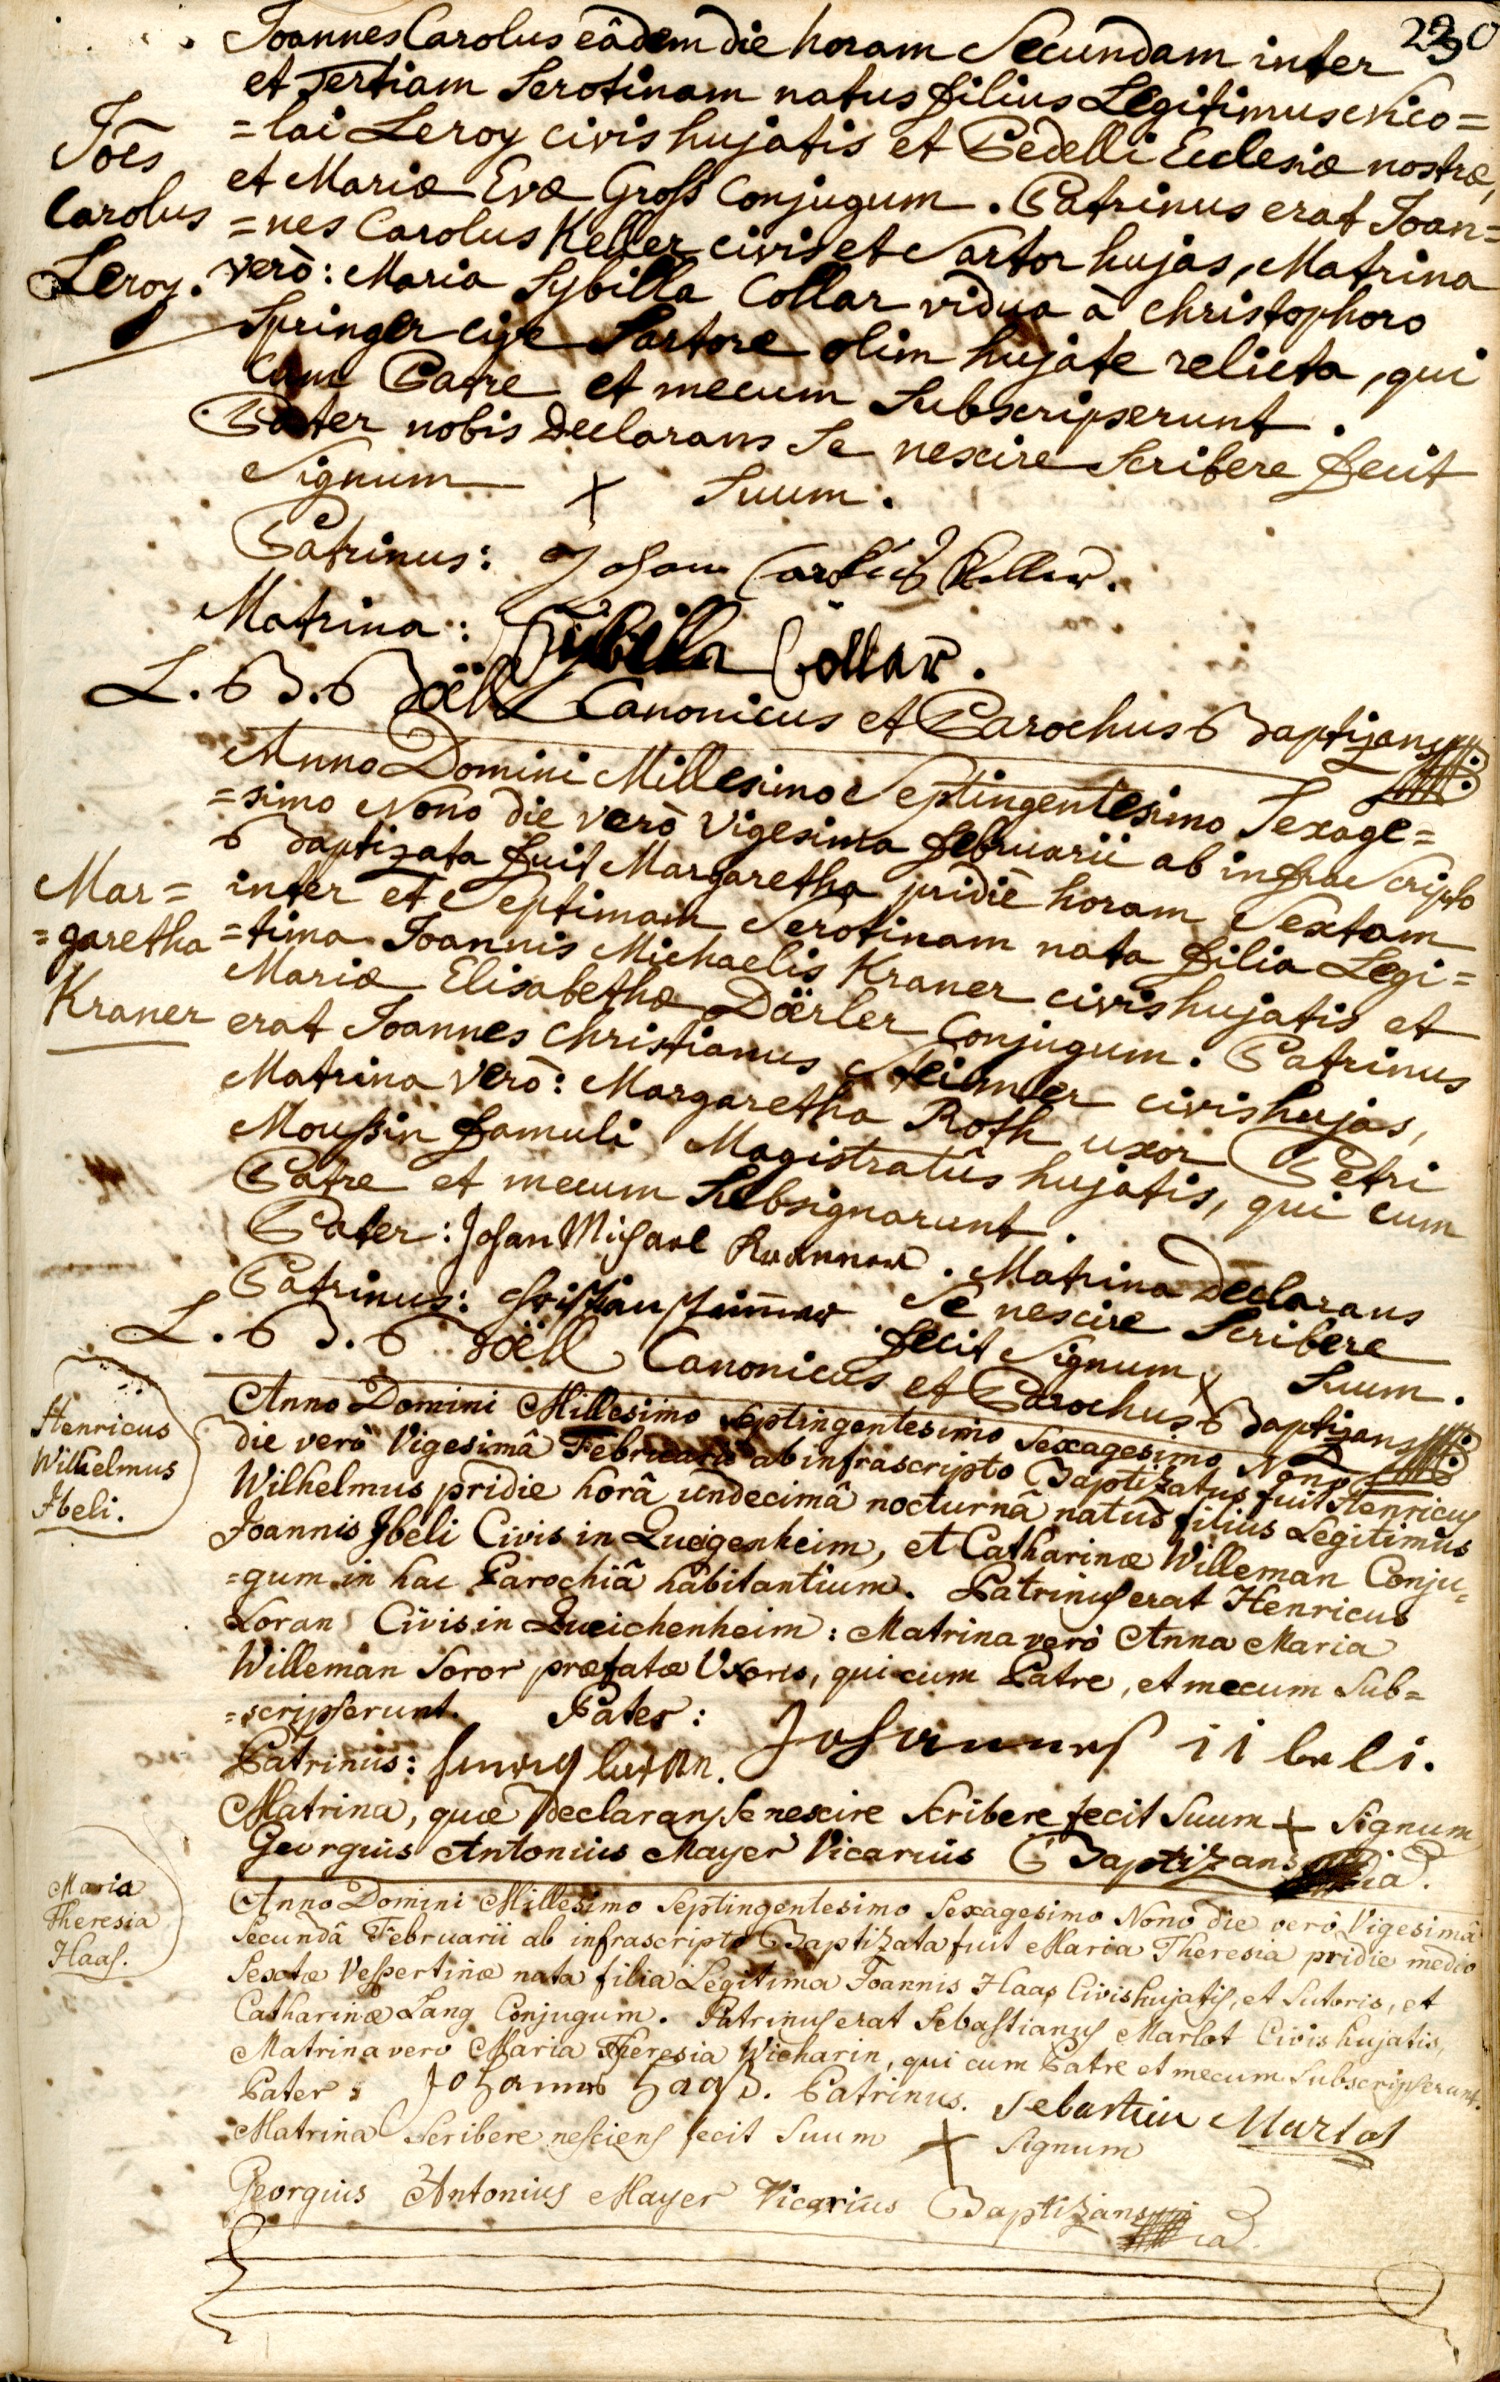 230
Joannes Carolus eâdem die horam Secundam inter
et Tertiam Serotinam natus filius Legitimus Nico=
=lai Leroy civis hujatis et Pedelli Ecclesiæ nostræ,
et Mariæ Evæ Groß Conjugum. Patrinus erat Joan=
=nes Carolus Keller civis et Sartor hujas, Matrina
verò: Maria Sybilla Collar vidua à Christophoro
Springer cive Sartore olim hujate relicta, qui
Cum Patre et mecum Subscripserunt.
Pater nobis Declarans Se nescire Scribere fecit
Signum X Suum.
Patrinus: Johann Carl Keller.
Matrina: Sÿbilla Collar.
L. B. Böell Canonicus et Parochus Baptizans
Joes
Carolus
Leroy.
Anno Domini Millesimo Septingentesimo Sexage=
=simo Nono die verò Vigesima februarii ab infra Scripto
Baptizata fuit Margaretha pridiè horam Sextam
inter et Septimam Serotinam nata filia Legi=
=tima Joannis Michaelis Kraner civis hujatis et
Mariæ Elisabethæ Döerler Conjugum. Patrinus
erat Joannes Christianus Steimer civis hujas,
Matrina verò: Margaretha Roth uxor Petri
Moußin famuli Magistratûs hujatis, qui cum
Patre et mecum Subsignarunt.
Pater: Johan Michael Kranner. Matrina Declarans
Patrinus: Christian Steimer Se nescire Scribere
fecit Signum X Suum.
L. B. Böell Canonicus et Parochus Baptizans
Mar=
=garetha
Kraner
Anno Domini Millesimo Septingentesimo Sexagesimo Nono
die verò Vigesimâ Februarii ab infrascripto Baptizatus fuit Henricus
Wilhelmus pridie horâ undecimâ nocturnâ natus filius Legitimus
Joannis Jbeli Civis in Queigenheim, et Catharinæ Willeman Conju=
=gum in hac Parochiâ habitantium. Patrinus erat Henricus
Loran Civis in Queichenheim: Matrina verò Anna Maria
Willeman Soror præfatæ Uxoris, qui cum Patre, et mecum Sub=
=scripserunt. Pater: Johannes iibeli.
Patrinus:
Matrina, quæ Declarans Se nescire Scribere fecit Suum + Signum
Georgius Antonius Mayer Vicarius Baptizans
Henricus
Wilhelmus
Jbeli.
Anno Domini Millesimo Septingentesimo Sexagesimo Nono die verò Vigesimâ
Secundâ Februarii ab infrascripto Baptizata fuit Maria Theresia pridie medio
Sextæ Vespertinæ nata filia Legitima Joannis Haas Civis hujatis, et Sutoris, et
Catharinæ Lang Conjugum. Patrinus erat Sebastianus Marlot Civis hujatis,
Matrina verò Maria Theresia Wicharin, qui cum Patre et mecum Subscripserunt.
Pater: Johannes Haaß. Patrinus. Sebastian Marlot
Matrina Scribere nesciens fecit Suum X Signum
Georgius Antonius Mayer Vicarius Baptizans
Maria
Theresia
Haas.